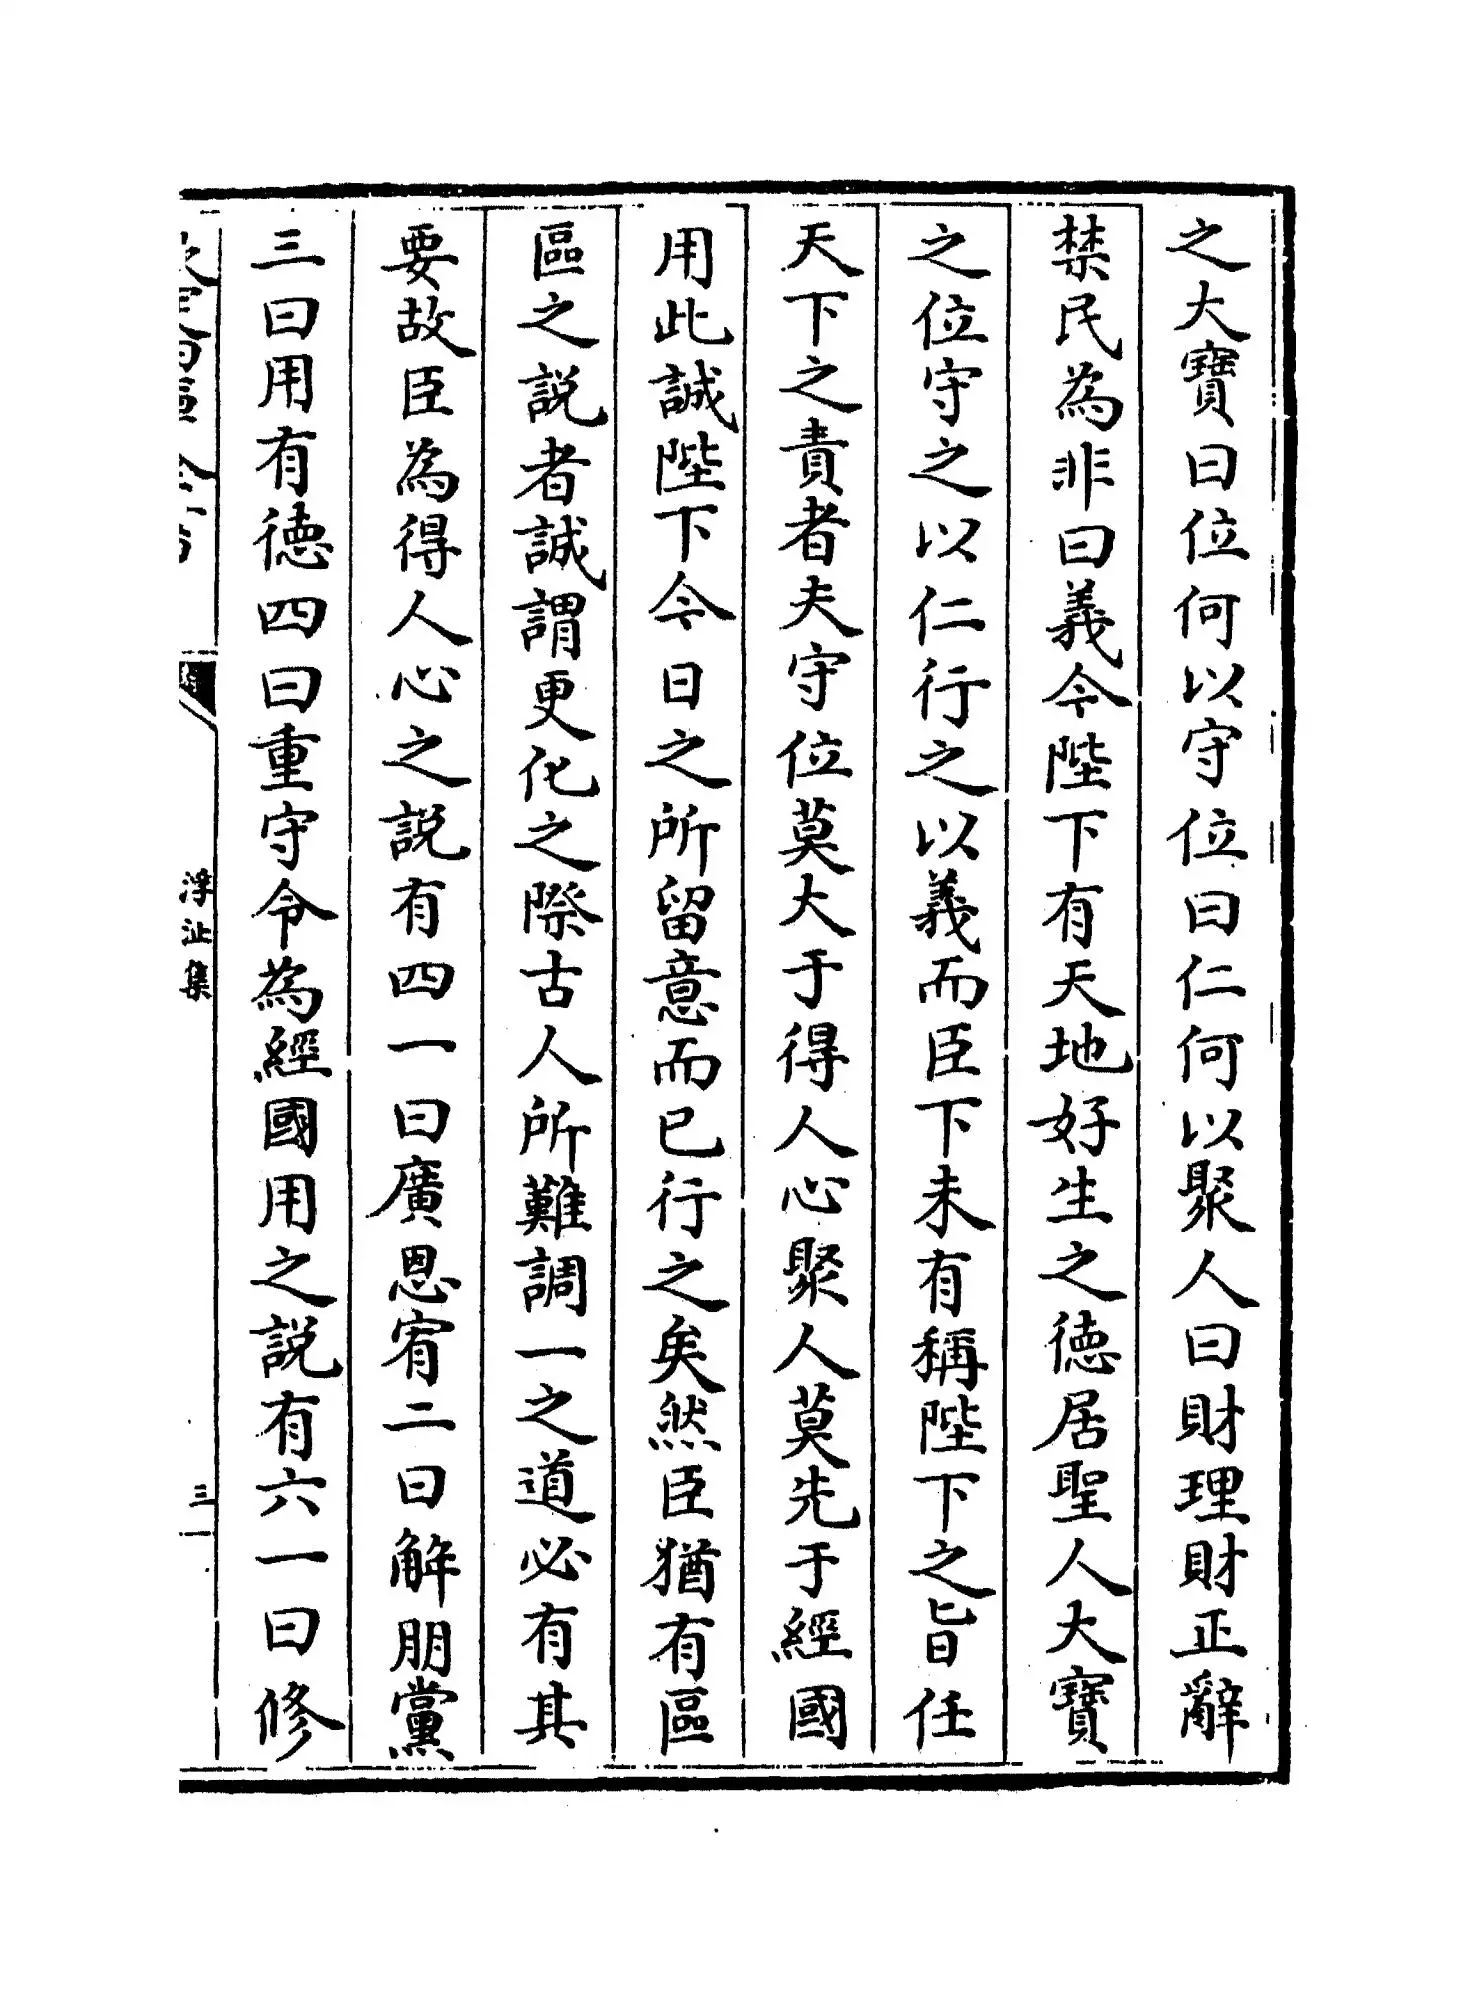 之大寶曰位何以守位曰仁何以聚人曰財理財正辭
禁民為非曰義今陛下有天地好生之德居聖人大寶
之位守之以仁行之以義而臣下未有稱陛下之旨任
天下之責者夫守位莫大于得人心聚人莫先于經國
用此誠陛下今日之所留意而已行之矣然臣猶有區
區之説者誠謂更化之際古人所難調一之道必有其
要故臣為得人心之説有四一曰廣恩宥二曰解朋黨
三曰用有德四曰重守令為經國用之説有六一曰修
浮沚集
三